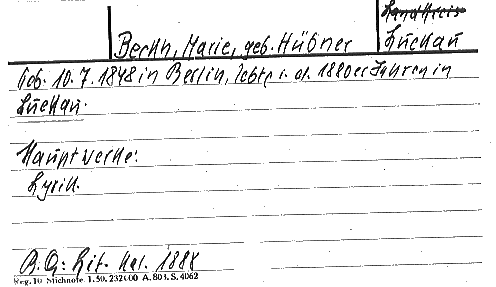 Landkreis
Berthn, Marie, geb. Hübner Luckau
Geb. 10.7.1848 in Berlin, lebte i. d. 1880er Jahren in
Luckau.
Hauptwerke:
Lyrik.
B.Q: Lit. Kal. 1888
Reg. 10 Stichnote. 1.50. 232000 A. 803. S. 4062